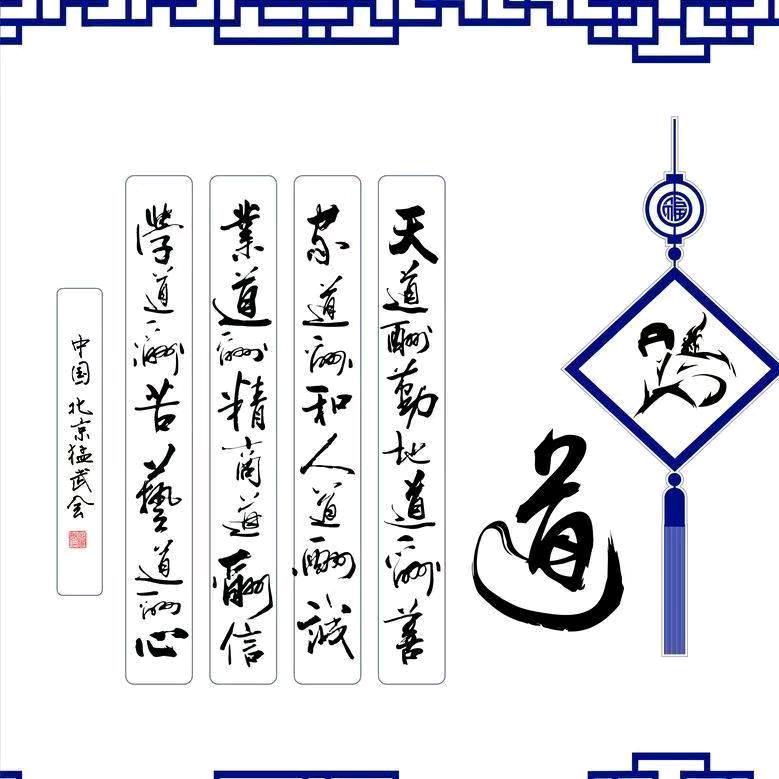 福
道
天道酬勤地道酬善
家道酬和人道酬诚
業道酬精商道酬信
學道酬苦藝道酬心
中国北京猛武会